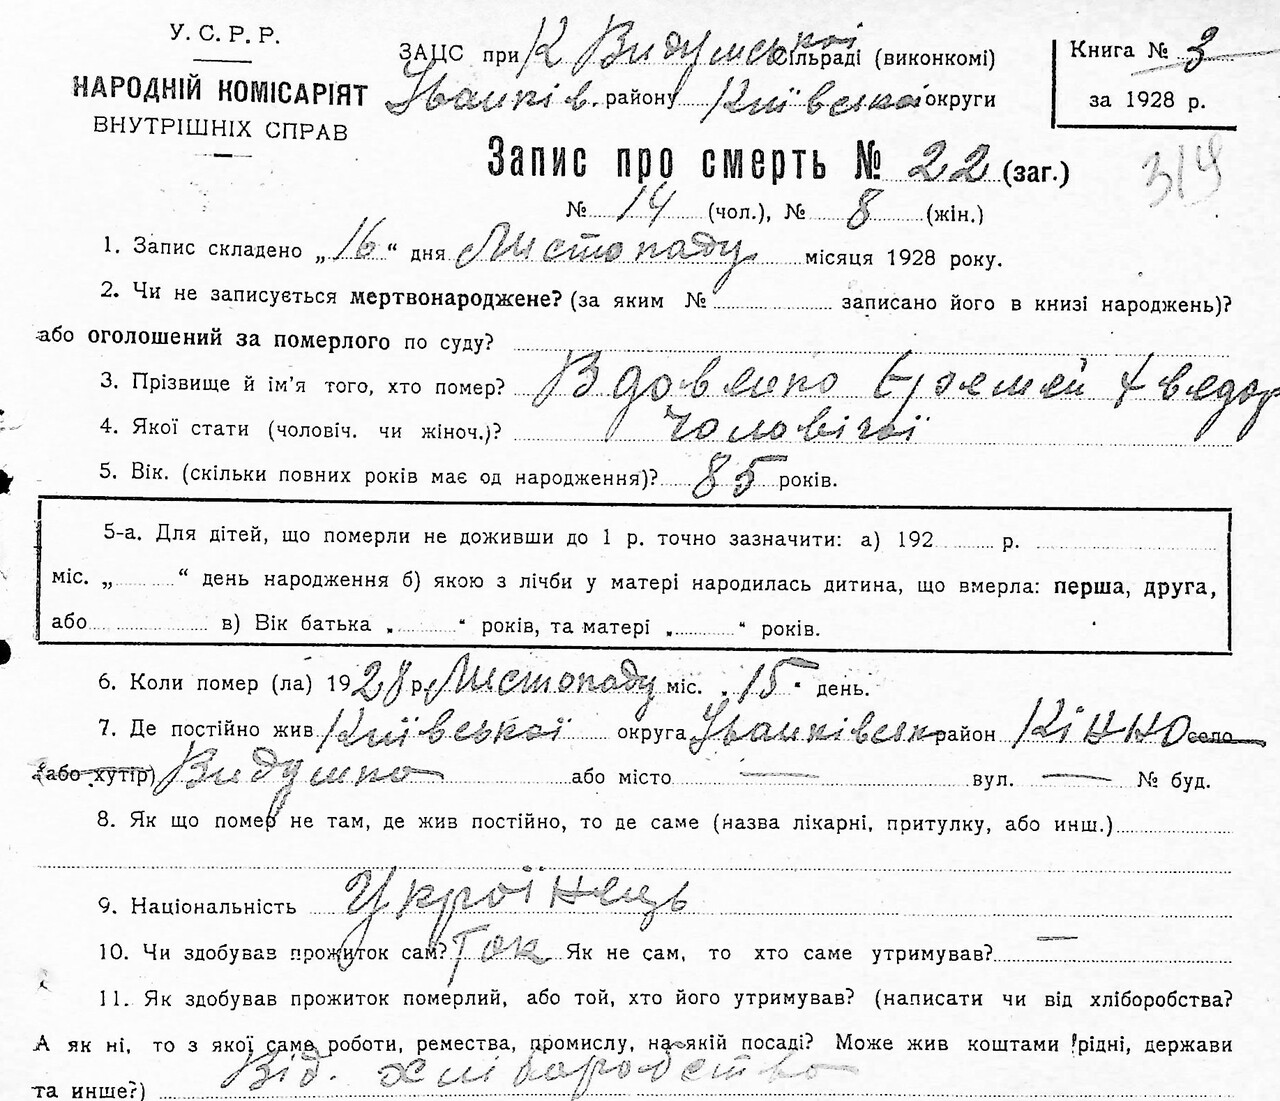 У. С. Р. Р.
НАРОДНІЙ КОМІСАРІЯТ
ВНУТРІШНІХ СПРАВ
ЗАЦС при К Видумської сільраді (виконкомі)
Іванків. району Київської округи
Книга № 3
за 1928 р.
Запис про смерть № 22 (заг.)
319
№ 14 (чол.), № 8 (жін.)
1. Запис складено „16“ дня Листопаду місяця 1928 року.
2. Чи не записується мертвонароджене? (за яким № записано його в книзі народжень)?
або оголошений за померлого по суду?
3. Прізвище й ім’я того, хто помер? Вдовенко Еремей
4. Якої статі (чоловіч. чи жіноч.)? Чоловічої
5. Вік. (скільки повних років має од народження)? 85 років.
5-а. Для дітей, що померли не доживши до 1 р. точно зазначити: а) 192 р.
міс. „ “ день народження б) якою з лічби у матері народилась дитина, що вмерла: перша, друга,
або в) Вік батька „ “ років, та матері „ “ років.
6. Коли помер (ла) 1928 р. Листопаду міс. „15“ день.
7. Де постійно жив Київської округа Іванківськ район Кінно село
(або хутір) Видумка або місто — вул. — № буд.
8. Як що помер не там, де жив постійно, то де саме (назва лікарні, притулку, або инш.)
9. Національність Українець
10. Чи здобував прожиток сам? Так Як не сам, то хто саме утримував? —
11. Як здобував прожиток померлий, або той, хто його утримував? (написати чи від хліборобства?
А як ні, то з якої саме роботи, ремества, промислу, на якій посаді? Може жив коштами рідні, держави
та инше?) Від. хліборобство